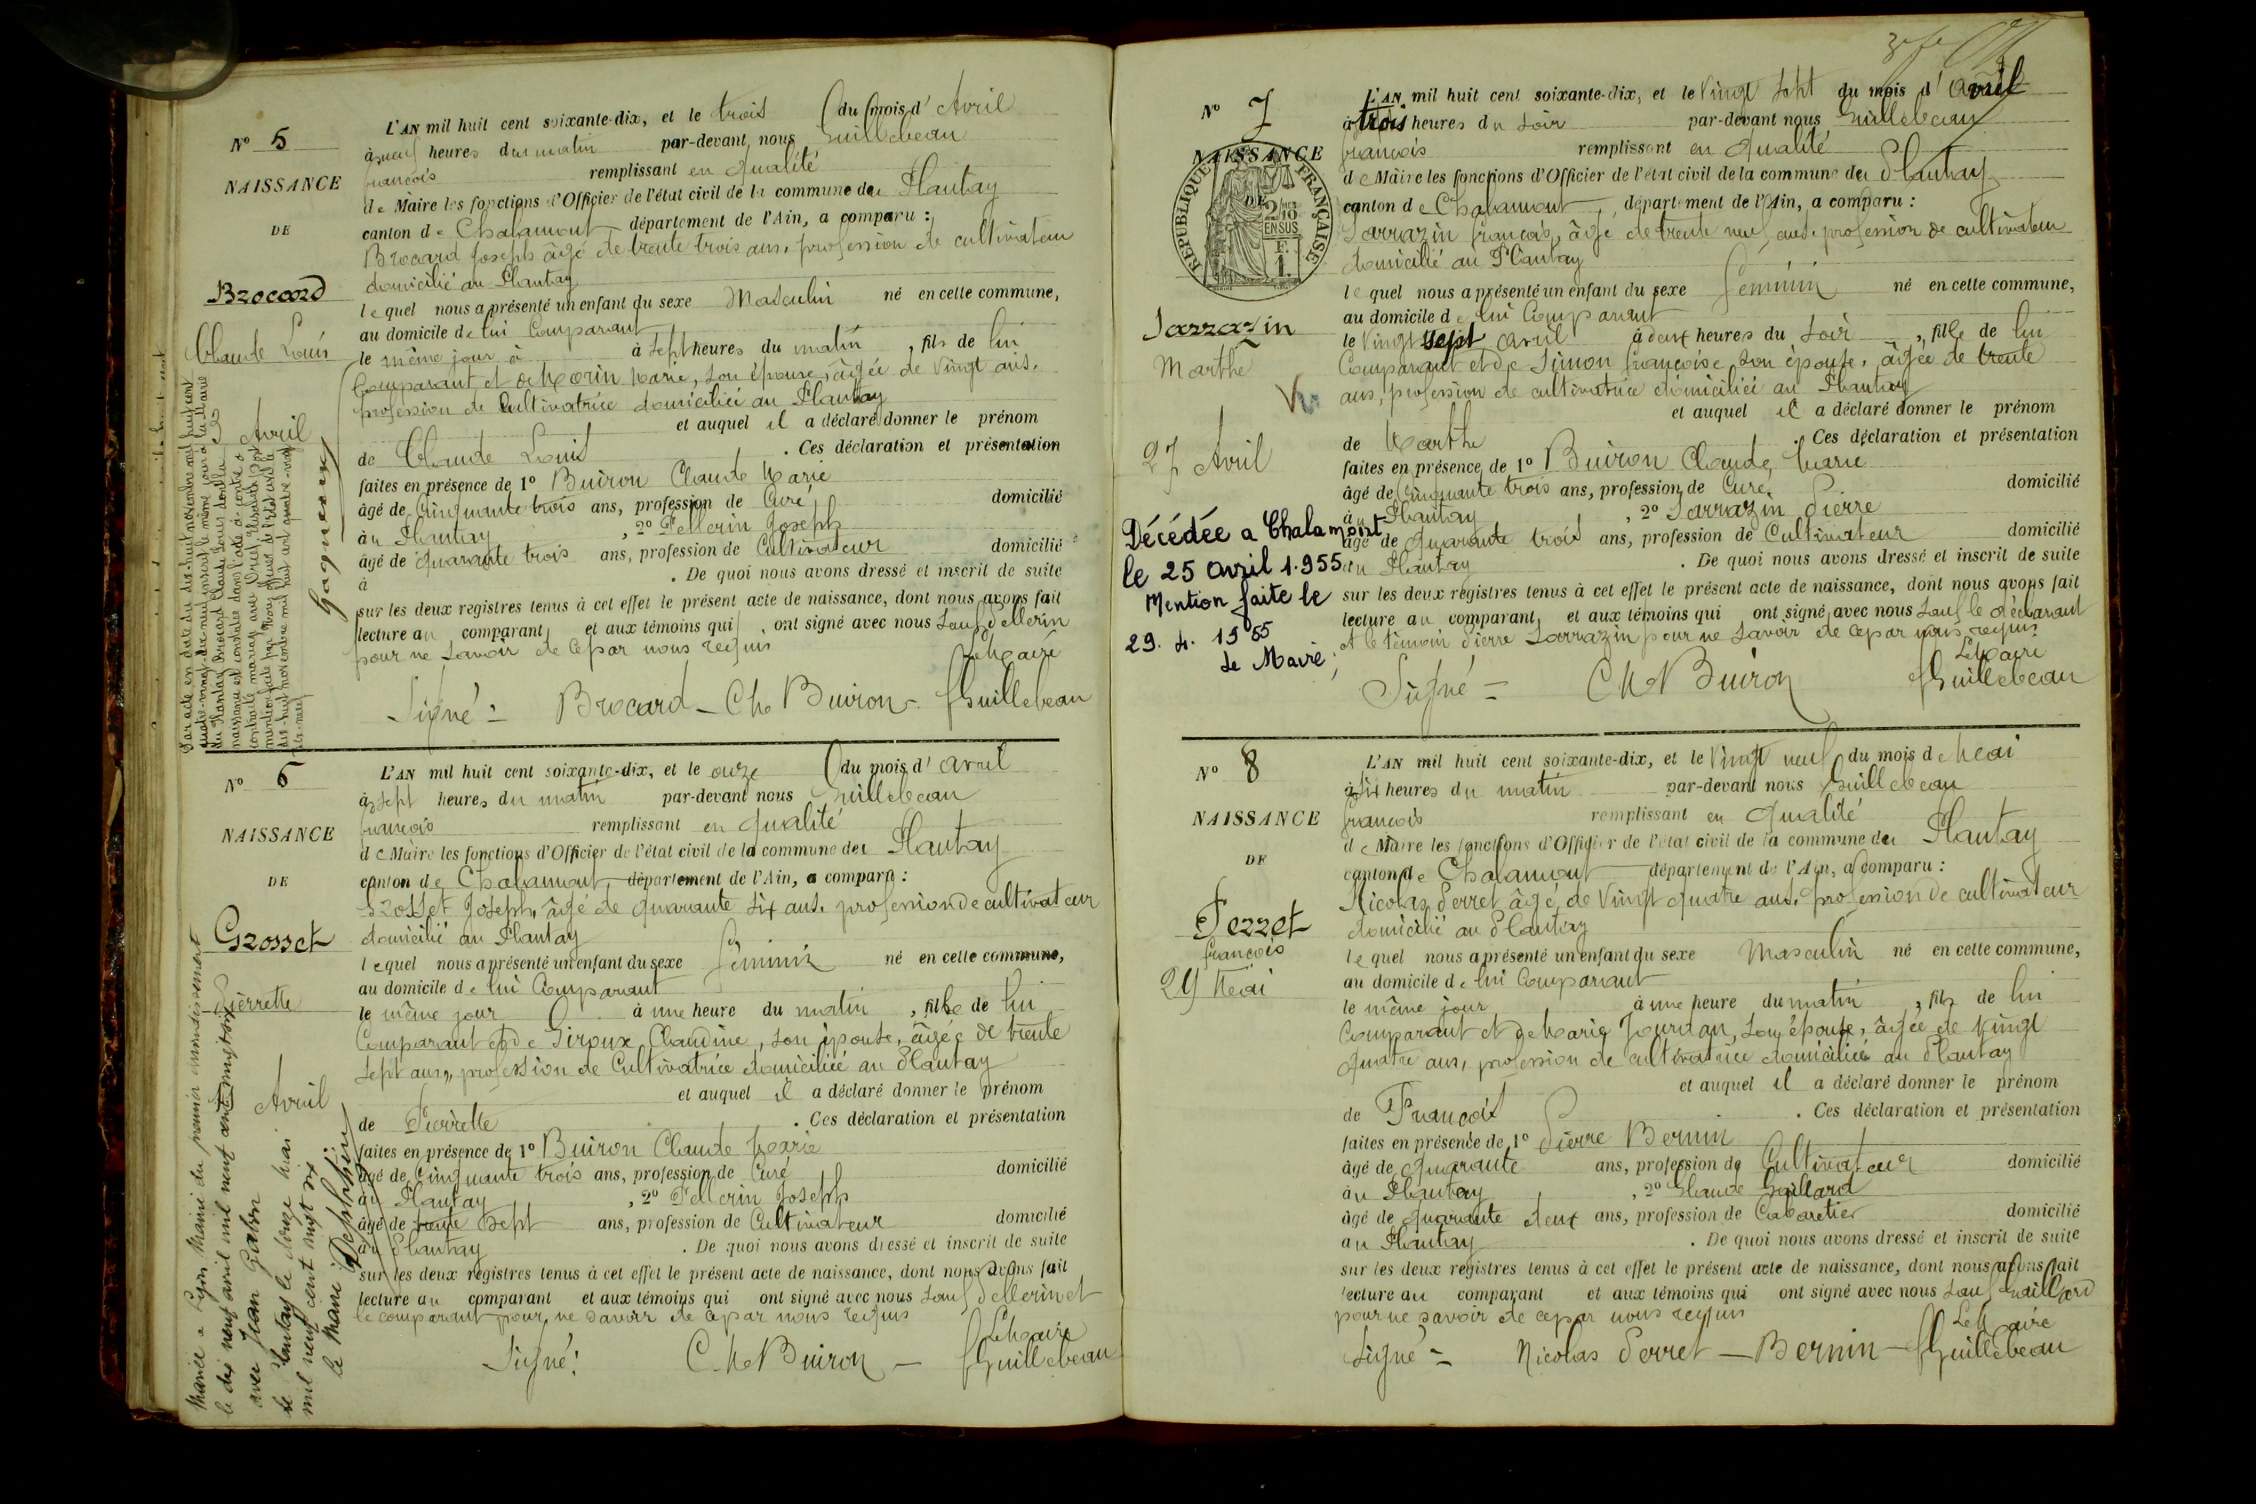 N° 5
NAISSANCE
DE
Brocard
Claude Louis
3 Avril
L'AN mil huit cent soixante-dix, et le trois du mois d' Avril
à neuf heures du matin par-devant nous Guillebeau
françois remplissant en qualité
de Maire les fonctions d'Officier de l'état civil de la commune du Plantay
canton de Chalamont département de l'Ain, a comparu :
Brocard Joseph âgé de trente trois ans, profession de cultivateur
domicilié au Plantay
lequel nous a présenté un enfant du sexe Masculin né en cette commune,
au domicile de lui Comparant
le même jour à à sept heures du matin, fils de lui
Comparant et de Morin Marie, son épouse, âgée de Vingt ans,
profession de Cultivatrice domiciliée au Plantay
et auquel il a déclaré donner le prénom
de Claude Louis . Ces déclaration et présentation
faites en présence de 1° Buiron Claude Marie
âgé de Cinquante trois ans, profession de Curé domicilié
à u Plantay , 2° Pellerin Joseph
âgé de quarante trois ans, profession de Cultivateur domicilié
à . De quoi nous avons dressé et inscrit de suite
sur les deux registres tenus à cet effet le présent acte de naissance, dont nous avons fait
lecture au comparant et aux témoins qui ont signé avec nous sauf Pellerin
pour ne savoir de ce par nous requis
Le Maire
Signé = Brocard - Ch Buiron - f Guillebeau
Par acte en date du dix-huit novembre mil huit cent
quatre-vingt-dix-neuf inscrit le même jour à la Mairie
du Plantay Brocard Claude Louis dont la
naissance est constatée dans l'acte ci-contre a
contracté mariage avec
mention faite par Nous officier de l'état civil le
dix-huit novembre mil huit cent quatre-vingt
dix-neuf
Gagneux
N° 6
NAISSANCE
DE
Grosset
Pierrette
Avril
L'AN mil huit cent soixante-dix, et le onze du mois d' avril
à sept heures du matin par-devant nous Guillebeau
françois remplissant en qualité
de Maire les fonctions d'Officier de l'état civil de la commune du Plantay
canton de Chalamont département de l'Ain, a comparu :
Grosset Joseph, âgé de quarante six ans, profession de cultivateur
domicilié au Plantay
lequel nous a présenté un enfant du sexe féminin né en cette commune,
au domicile de lui Comparant
le même jour à une heure du matin, fille de lui
Comparant et de Giroux Claudine, son épouse, âgée de trente
sept ans, profession de Cultivatrice domiciliée au Plantay
et auquel il a déclaré donner le prénom
de Pierrette . Ces déclaration et présentation
faites en présence de 1° Buiron Claude Marie
âgé de Cinquante trois ans, profession de Curé domicilié
à u Plantay , 2° Pellerin Joseph
âgé de trente sept ans, profession de Cultivateur domicilié
au Plantay . De quoi nous avons dressé et inscrit de suite
sur les deux registres tenus à cet effet le présent acte de naissance, dont nous avons fait
lecture au comparant et aux témoins qui ont signé avec nous sauf Pellerin et
le comparant pour ne savoir de ce par nous requis
Le Maire
Signé : C. M. Buiron - f Guillebeau
Mariée a Lyon Mairie du premier arrondissement
le dix neuf avril mil neuf cent
avec Jean
Le Plantay le douze Mai
mil neuf cent vingt six
Le Maire
N° 7
NAISSANCE
DE
RÉPUBLIQUE FRANÇAISE
2/10 EN SUS
F. 1.
Sarrazin
Marthe
Vu
27 Avril
L'AN mil huit cent soixante-dix, et le Vingt sept du mois d' avril
à trois heures du soir par-devant nous Guillebeau
françois remplissant en qualité
de Maire les fonctions d'Officier de l'état civil de la commune du Plantay
canton de Chalamont, département de l'Ain, a comparu :
Sarrazin françois, âgé de trente neuf ans, profession de cultivateur
domicilié au Plantay
lequel nous a présenté un enfant du sexe féminin né en cette commune,
au domicile de lui Comparant
le Vingt sept avril à deux heures du soir, fille de lui
Comparant et de Simon françoise son épouse, âgée de trente
ans, profession de cultivatrice domiciliée au Plantay
et auquel il a déclaré donner le prénom
de Marthe . Ces déclaration et présentation
faites en présence de 1° Buiron Claude Marie
âgé de Cinquante trois ans, profession de Curé domicilié
à u Plantay , 2° Sarrazin Pierre
âgé de quarante trois ans, profession de Cultivateur domicilié
au Plantay . De quoi nous avons dressé et inscrit de suite
sur les deux registres tenus à cet effet le présent acte de naissance, dont nous avons fait
lecture au comparant et aux témoins qui ont signé avec nous sauf le déclarant
et le témoin Pierre Sarrazin pour ne savoir de ce par nous requis
Le Maire
Signé = C M Buiron f Guillebeau
Décédée a Chalamont
le 25 avril 1.955
Mention faite le
29. 4. 1955
Le Maire,
N° 8
NAISSANCE
DE
Perret
françois
29 Mai
L'AN mil huit cent soixante-dix, et le Vingt neuf du mois de Mai
à six heures du matin par-devant nous Guillebeau
françois remplissant en qualité
de Maire les fonctions d'Officier de l'état civil de la commune du Plantay
canton de Chalamont département de l'Ain, a comparu :
Nicolas Perret âgé de Vingt quatre ans, profession de cultivateur
domicilié au Plantay
lequel nous a présenté un enfant du sexe Masculin né en cette commune,
au domicile de lui Comparant
le même jour à une heure du matin, fils de lui
Comparant et de Marie Jourdan, son épouse, âgée de Vingt
quatre ans, profession de cultivatrice domiciliée au Plantay
et auquel il a déclaré donner le prénom
de François . Ces déclaration et présentation
faites en présence de 1° Pierre Bernin
âgé de quarante ans, profession de Cultivateur domicilié
à u Plantay , 2° Claude Gaillard
âgé de quarante deux ans, profession de Cabaretier domicilié
au Plantay . De quoi nous avons dressé et inscrit de suite
sur les deux registres tenus à cet effet le présent acte de naissance, dont nous avons fait
lecture au comparant et aux témoins qui ont signé avec nous sauf Gaillard
pour ne savoir de ce par nous requis
Le Maire
Signé = Nicolas Perret - Bernin - f Guillebeau